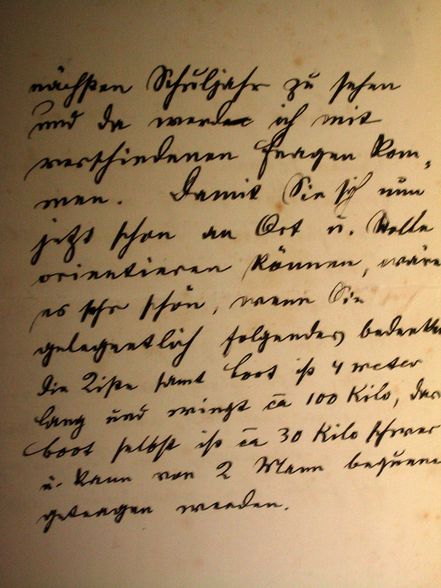 nächsten Schuljahr zu sehen
und da werde ich mit
verschiedenen Fragen kom-
men. Damit Sie sich nun
jetzt schon an Ort u. Stelle
orientieren können, wäre
es sehr schön, wenn Sie
gelegentlich folgendes bedenken
die Kiste samt boot ist 4 meter
lang und wiegt ca 100 Kilo, das
boot selbst ist ca 30 Kilo schwer
u. kann von 2 Mann bequem
getragen werden.